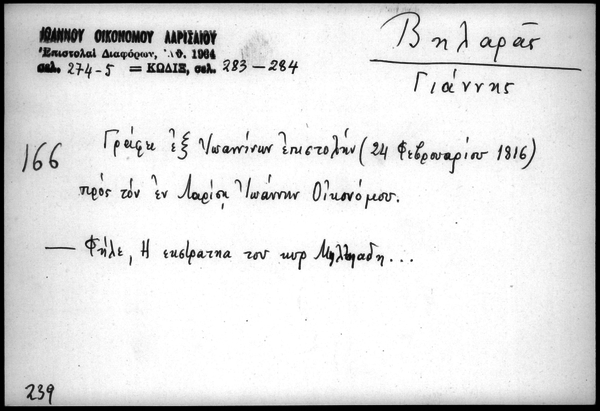 ΙΩΑΝΝΟΥ ΟΙΚΟΝΟΜΟΥ ΛΑΡΙΣΑΙΟΥ
Ἐπιστολαὶ Διαφόρων, Ἀθ. 1964
σελ. 274-5 = ΚΩΔΙΞ, σελ. 283-284
Βηλαρᾶς
Γιάννης
166
Γράφει ἐξ Ἰωαννίνων ἐπιστολήν (24 Φεβρουαρίου 1816)
πρὸς τὸν ἐν Λαρίσῃ Ἰωάννην Οἰκονόμου.
— Φήλε, Η εκστρατηα του κυρ Μηλτηαδη...
239